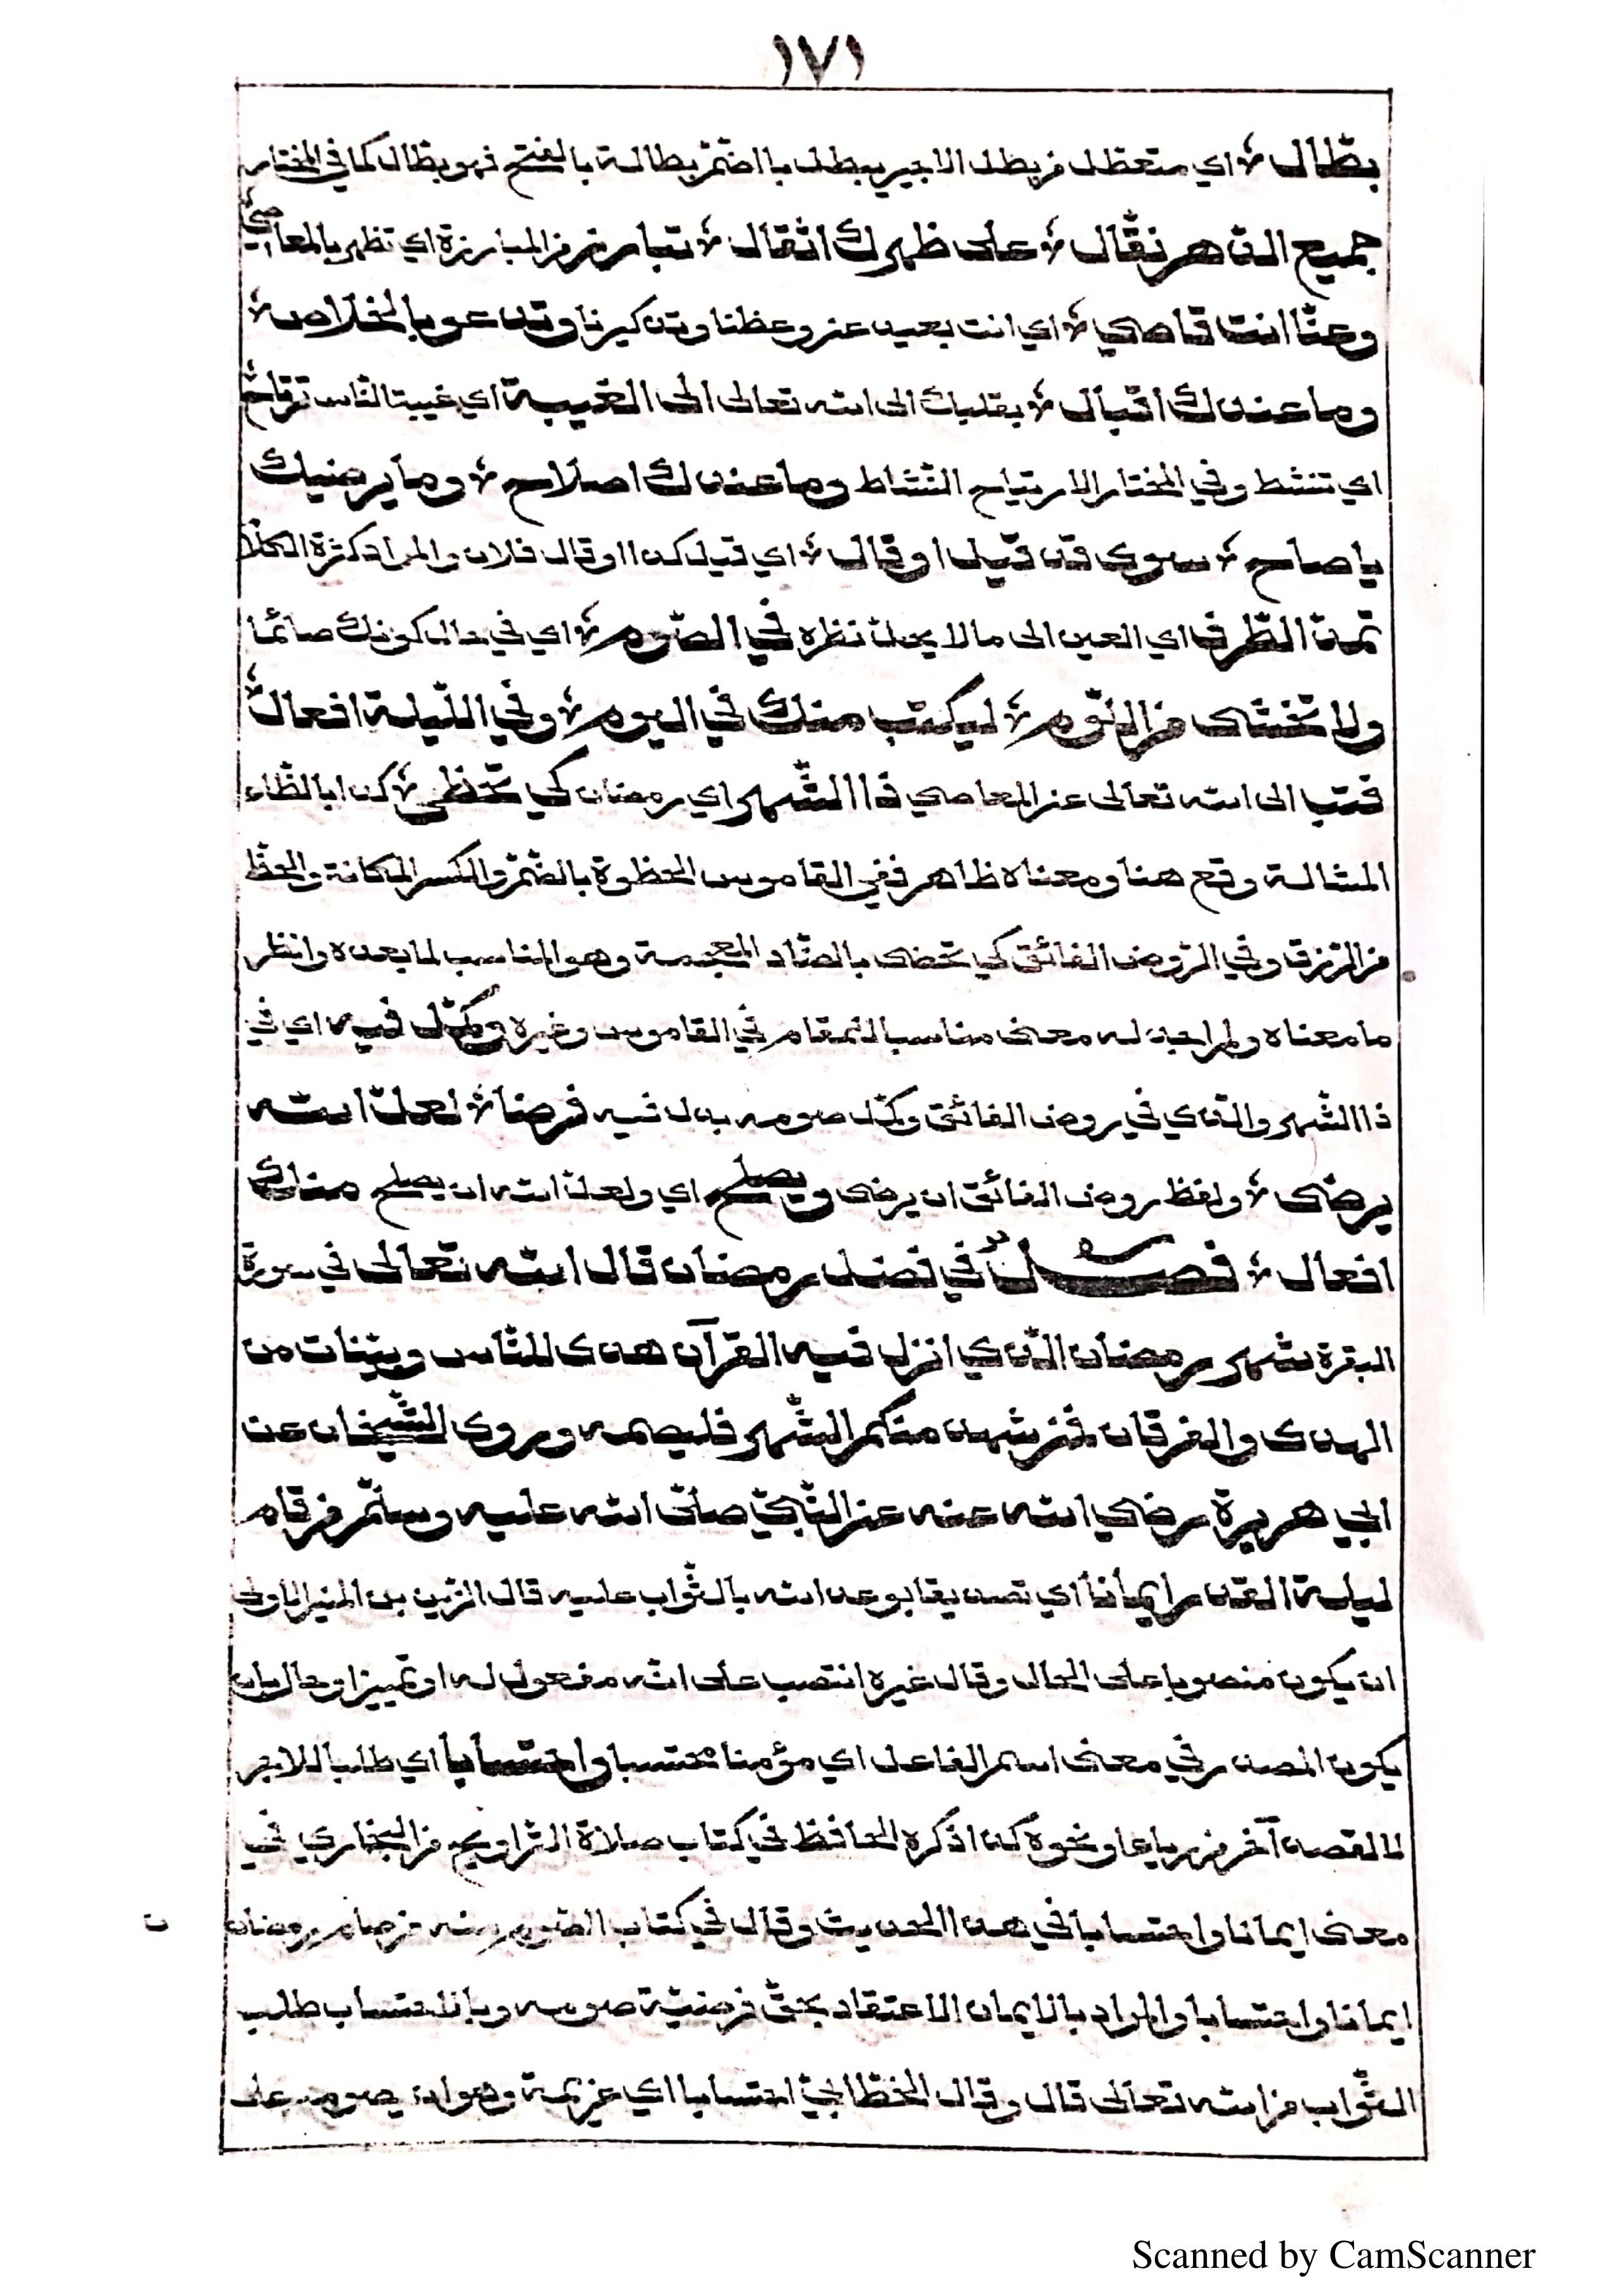 ١٧١
بطّال ۞ اي متعطل من بطل الاجير يبطل باالضّمّ بطالة بالفتح فهو بطال كما في المختار
جميع الدّهر نقّال ۞ على ظهرك اثقال ۞ تبارز من المبارزة اي تظهر بالمعاصي
وعنّا انت قاصي ۞ اي انت بعيد عن وعظنا وتذكيرنا وتدعو بالخلاص ۞
وما عندك اقبال ۞ بقلبك الى الله تعالى الى الغيبة اي غيبة النّاس ترتاح ۞
اي تنشط وفي المختار الارتياح النّشاط وما عندك اصلاح ۞ وما يرضيك
يا صاح ۞ سوى قد قيل او قال ۞ اي قيل كذا او قال فلان والمراد كثرة الكلا
تمدّ الطّرف اي العين الى ما لا يحلّ نظره في الصّوم ۞ اي في حال كونك صائما
ولا تخشى من اللّوم ۞ ليكتب منك في اليوم ۞ وفي اللّيلة افعال ۞
فتب الى الله تعالى عن المعاصي ذا الشّهر اي رمضان كي تحظى ۞ كذا بالظّاء
المشالة وقع هنا ومعناه ظاهر ففي القاموس الحظوة بالضّمّ والكسر المكانة والحظّ
من الرّزق وفي الرّوض الفائق كي تحضى بالضّاد المعجمة وهو المناسب لما بعده وانظر
ما معناه ولم اجد له معنى مناسبا للمقام في القاموس وغيره وكمّل فيه اي في
ذا الشّهر والذي في روض الفائق وكمّل صومه بدل فيه فرضا ۞ لعلّ الله
يرضى ۞ ولفظ روض الفائق ان يرضى ويصلح اي ولعلّ الله ان يصلح منك
افعال ۞ فصل في فضل رمضان قال الله تعالى في سورة
البقرة شهر رمضان الّذي انزل فيه القرآن هدى للنّاس وبيّنات من
الهدى والفرقان فمن شهد منكم الشّهر فليصمه وروى الشّيخان عن
ابي هريرة رضي الله عنه عن النّبيّ صلّى الله عليه وسلّم من قام
ليلة القدر ايمانا اي تصديقا بوعد الله بالثّواب عليه قال الزّين بن المنير الاولى
ان يكون منصوبا على الحال وقال غيره انتصب على انّه مفعول له او تمييز او حال بان
يكون المصدر في معنى اسم الفاعل اي مؤمنا محتسبا واحتسابا اي طلبا للاجر
لا لقصد آخر من رياء او نحوه كذا ذكره الحافظ في كتاب صلاة التّراويح من البخاري في
معنى ايمانا واحتسابا في هذا الحديث وقال في كتاب الصّوم منه من صام رمضان
ايمانا واحتسابا والمراد بالايمان الاعتقاد بحقّ فرضيّة صومه وبالاحتساب طلب
الثّواب من الله تعالى قال وقال الخطّابيّ احتسابا اي عزيمة وهو ان يصومه على
Scanned by CamScanner